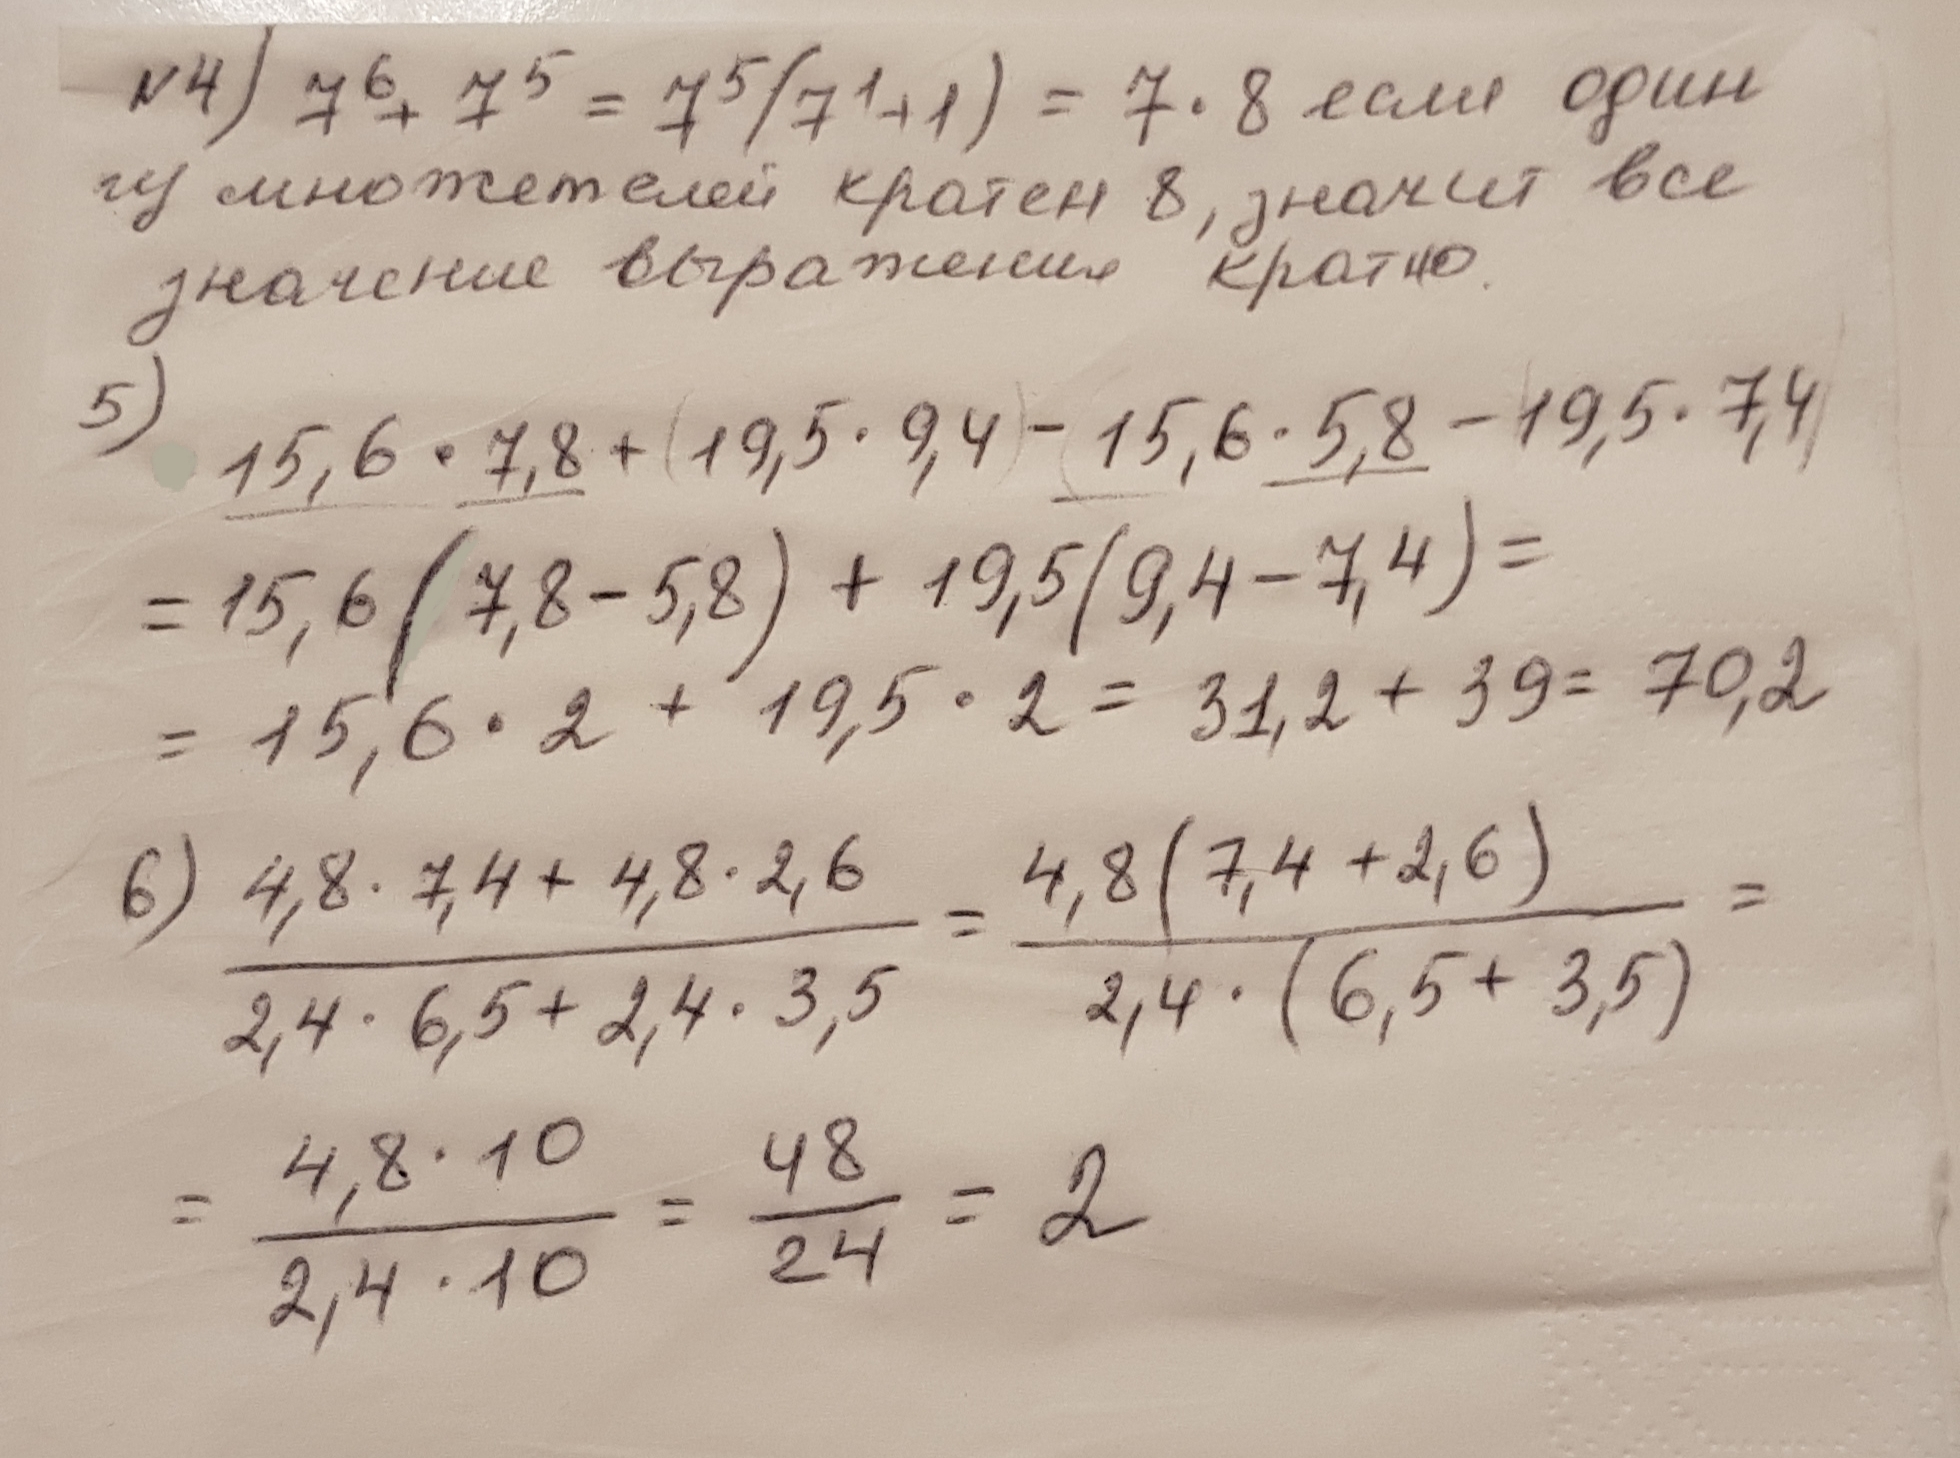 N4) 7⁶ + 7⁵ = 7⁵(7¹+1) = 7·8 если один
из множетелей кратен 8, значит все
значение выражения кратно.
5)
15,6 · 7,8 + (19,5 · 9,4) - 15,6 · 5,8 - 19,5 · 7,4
= 15,6 (7,8 - 5,8) + 19,5 (9,4 - 7,4) =
= 15,6 · 2 + 19,5 · 2 = 31,2 + 39 = 70,2
6) (4,8 · 7,4 + 4,8 · 2,6)/(2,4 · 6,5 + 2,4 · 3,5) = 4,8(7,4 + 2,6)/(2,4 · (6,5 + 3,5)) =
= (4,8 · 10)/(2,4 · 10) = 48/24 = 2